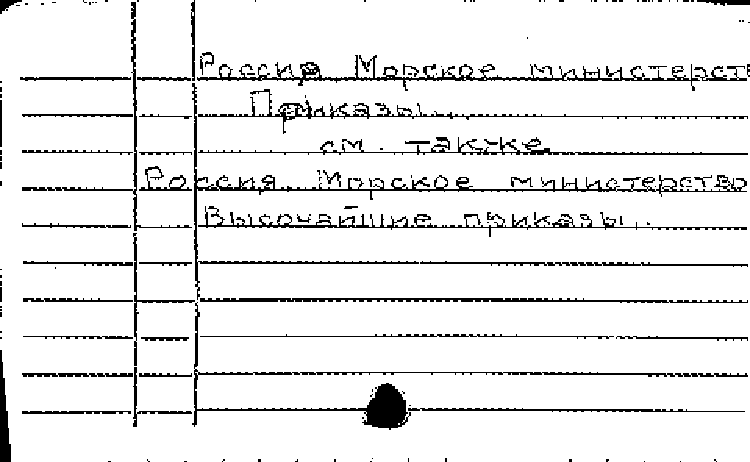 Россия Морское министерст
Приказы...
см. также
Россия. Морское министерство
Высочайшие приказы...